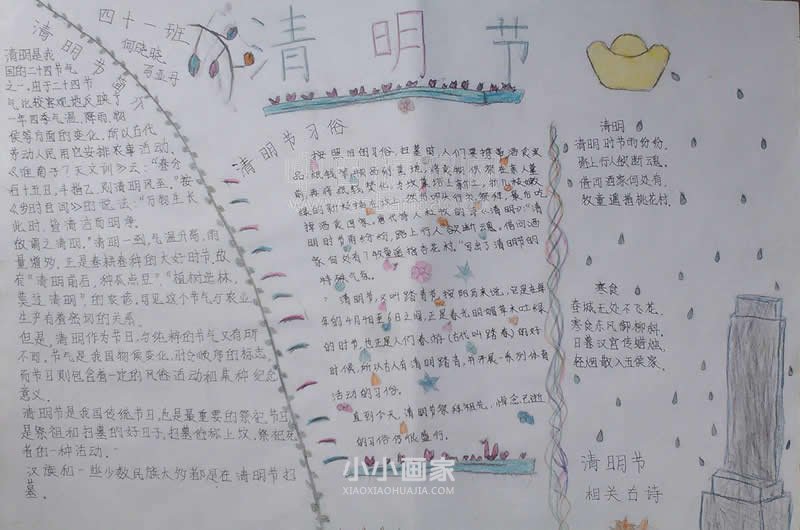 四十一班
何晓晓
清明节
清明节简介
清明是我
国的二十四节气
之一,由于二十四节
气比较客观地反映了
一年四季气温、降雨、物
候等方面的变化,所以古代
劳动人民用它安排农事活动。
《淮南子·天文训》云:“春分
后十五日,斗指乙,则清明风至。”按
《岁时百问》的说法:“万物生长
此时,皆清洁而明净。
故谓之清明。”清明一到,气温升高,雨
量增多,正是春耕春种的大好时节,故
有“清明前后,种瓜点豆”,“植树造林,
莫过清明”的农谚,可见这个节气与农业
生产有着密切的关系。
但是,清明作为节日,与纯粹的节气又有所
不同,节气是我国物候变化、时令顺序的标志,
而节日则包含着一定的风俗活动和某种纪念
意义。
清明节是我国传统节日,也是最重要的祭祀节日,
是祭祖和扫墓的好日子,扫墓俗称上坟,祭祀死
者的一种活动。
汉族和一些少数民族大多都是在清明节扫
墓。
清明节习俗
按照旧的习俗,扫墓时,人们要携带酒食果
品、纸钱等物品到墓地,将食物供祭在亲人墓
前,再将纸钱焚化,为坟墓培上新土,折几枝嫩
绿的新枝插在坟上,然后叩头行礼祭拜,最后吃
掉酒食回家。唐代诗人杜牧的诗《清明》:“清
明时节雨纷纷,路上行人欲断魂。借问酒
家何处有?牧童遥指杏花村。”写出了清明节的
特殊气氛。
清明节,又叫踏青节,按阳历来说,它是在每
年的4月4日至6日之间,正是春光明媚草木吐绿
的时节,也正是人们春游(古代叫踏青)的好
时候,所以古人有清明踏青,并开展一系列体育
活动的习俗。
直到今天,清明节祭拜祖先,悼念已逝
的习俗仍很盛行。
清明
清明时节雨纷纷,
路上行人欲断魂。
借问酒家何处有,
牧童遥指桃花村。
寒食
春城无处不飞花,
寒食东风御柳斜。
日暮汉宫传蜡烛,
轻烟散入五侯家。
清明节
相关古诗
小小画家
XIAOXIAOHUAJIA.COM